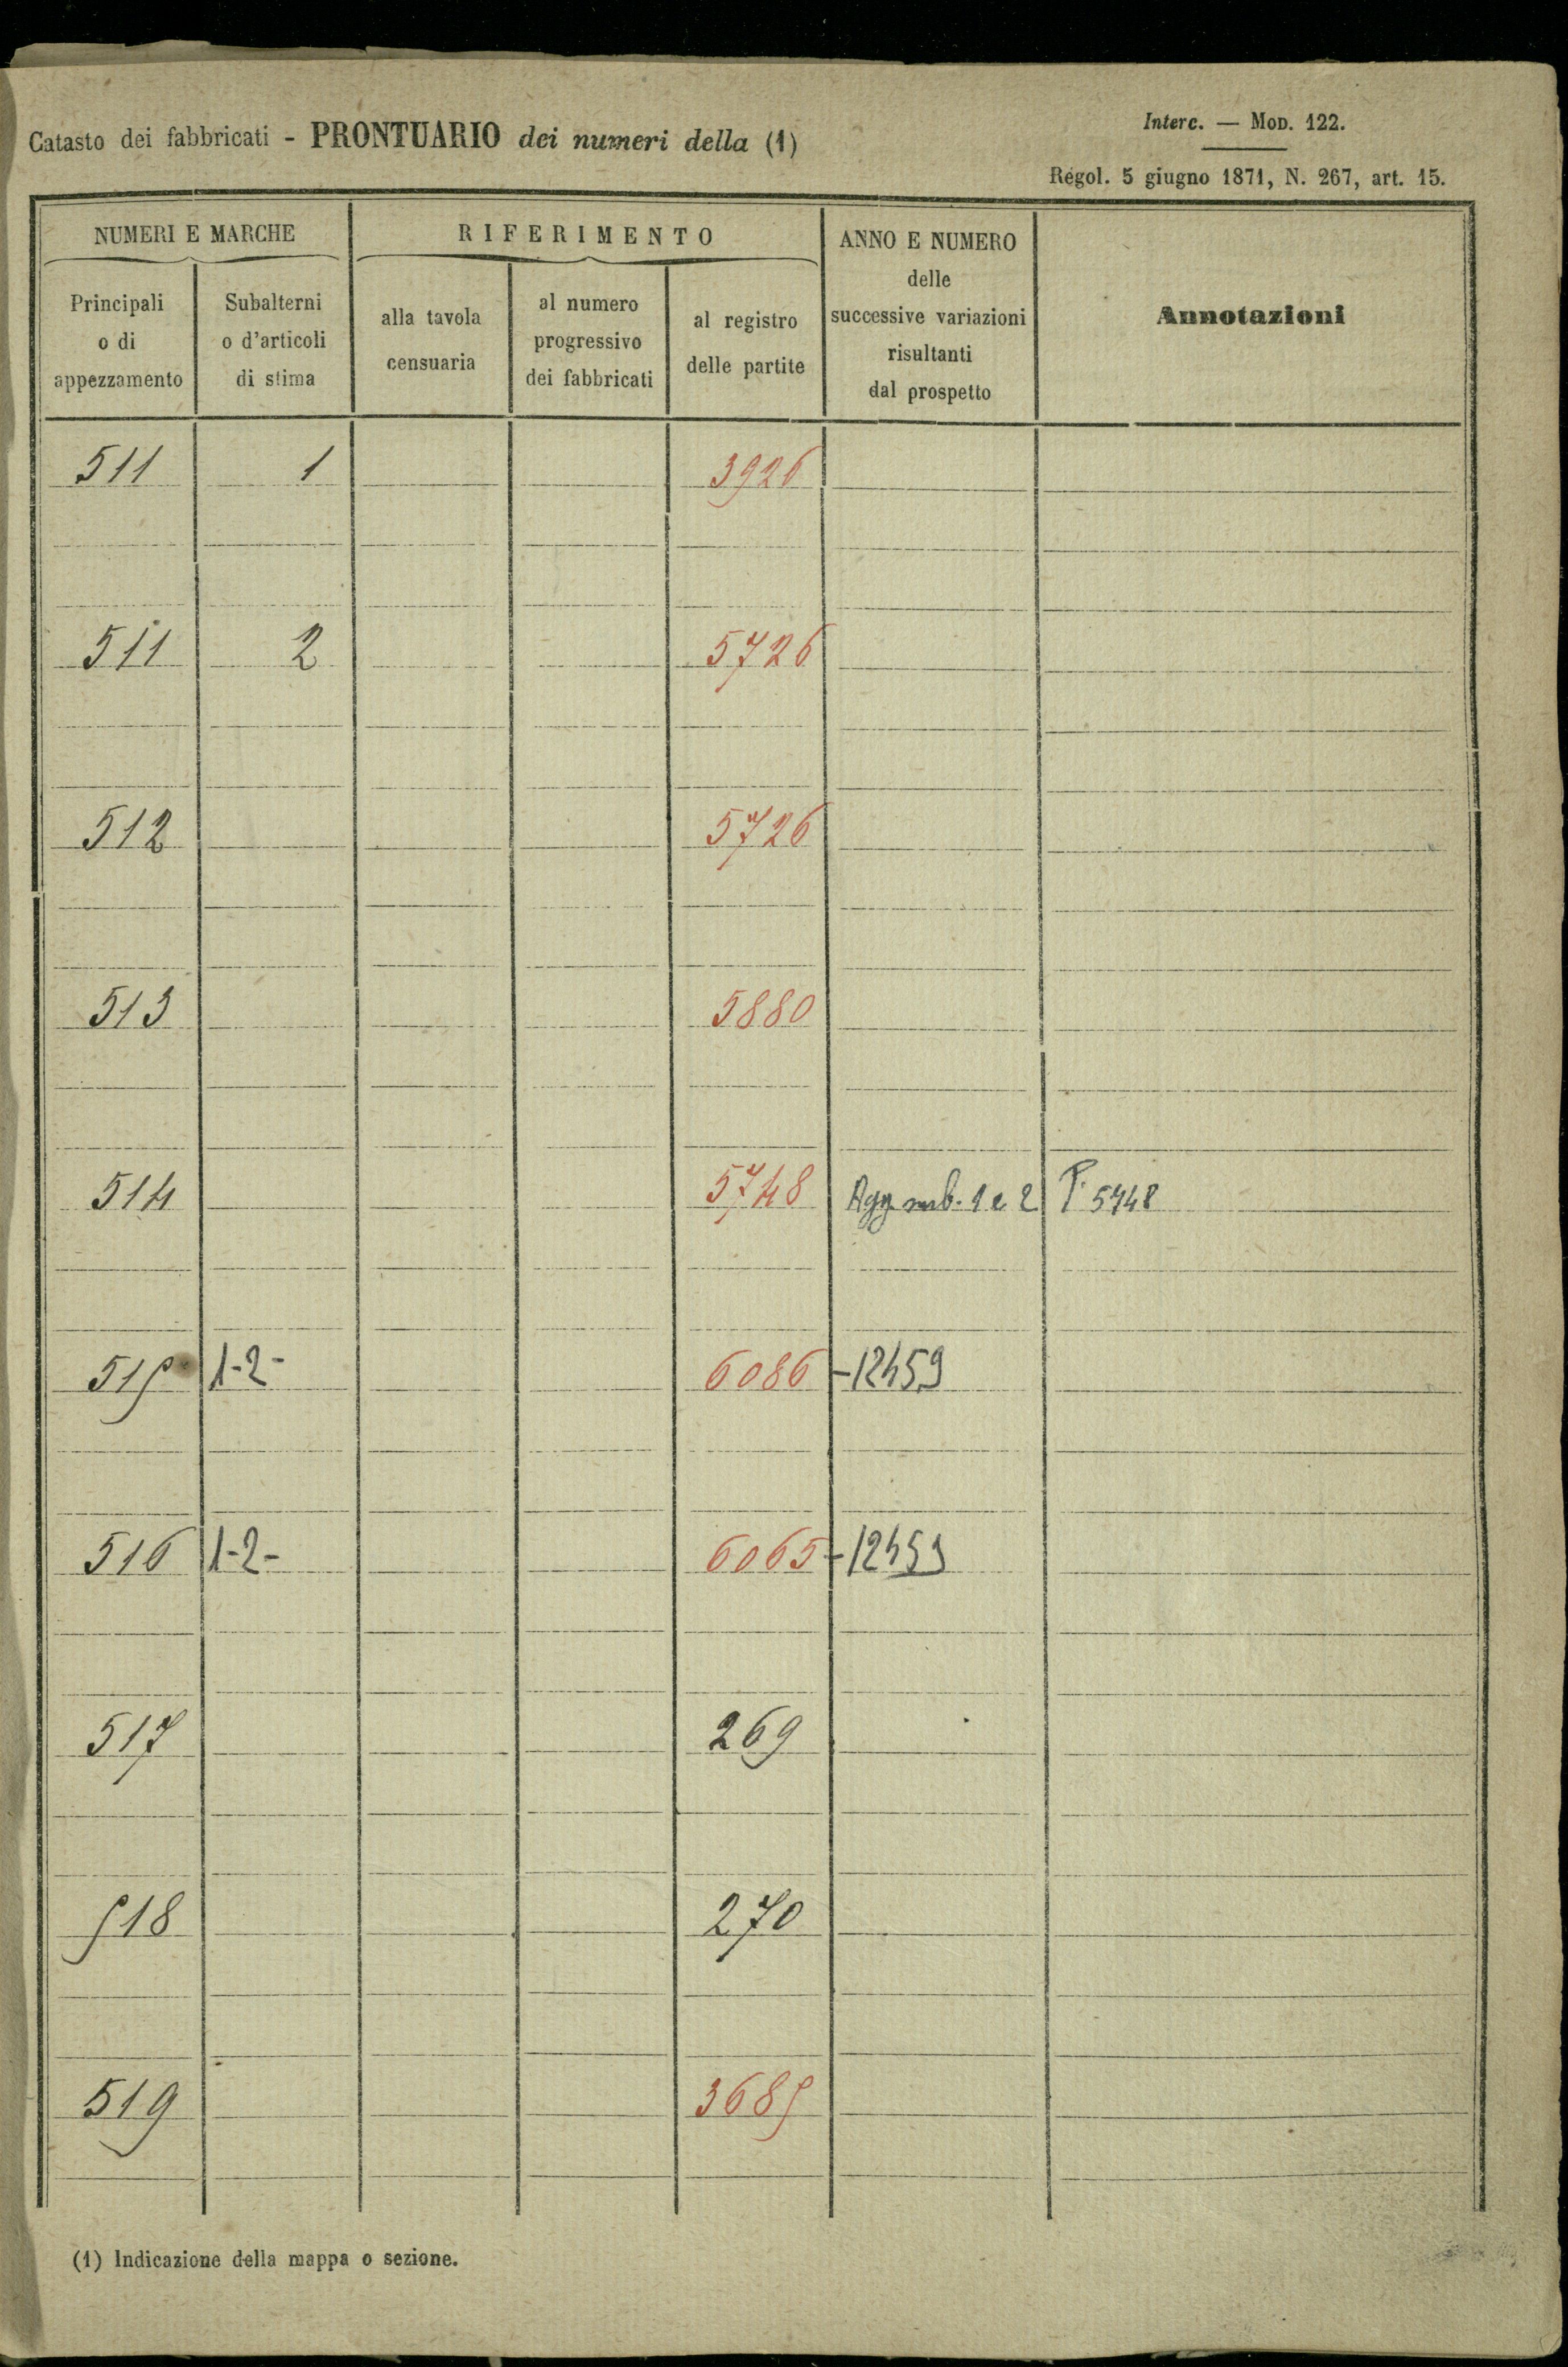 Catasto dei fabbricati - PRONTUARIO dei numeri della (1)
Interc. — Mod. 122.
Regol. 5 giugno 1871, N. 267, art. 15.
NUMERI E MARCHE
RIFERIMENTO
ANNO E NUMERO
delle
successive variazioni
risultanti
dal prospetto
Annotazioni
Principali
o di
appezzamento
Subalterni
o d'articoli
di stima
alla tavola
censuaria
al numero
progressivo
dei fabbricati
al registro
delle partite
511 1 3926
511 2 5726
512 5726
513 5880
514 5748 Agg. sub. 1 e 2 P. 5748
515 1-2- 6086 -12459
516 1-2- 6065 -12459
517 269
518 270
519 3685
(1) Indicazione della mappa o sezione.